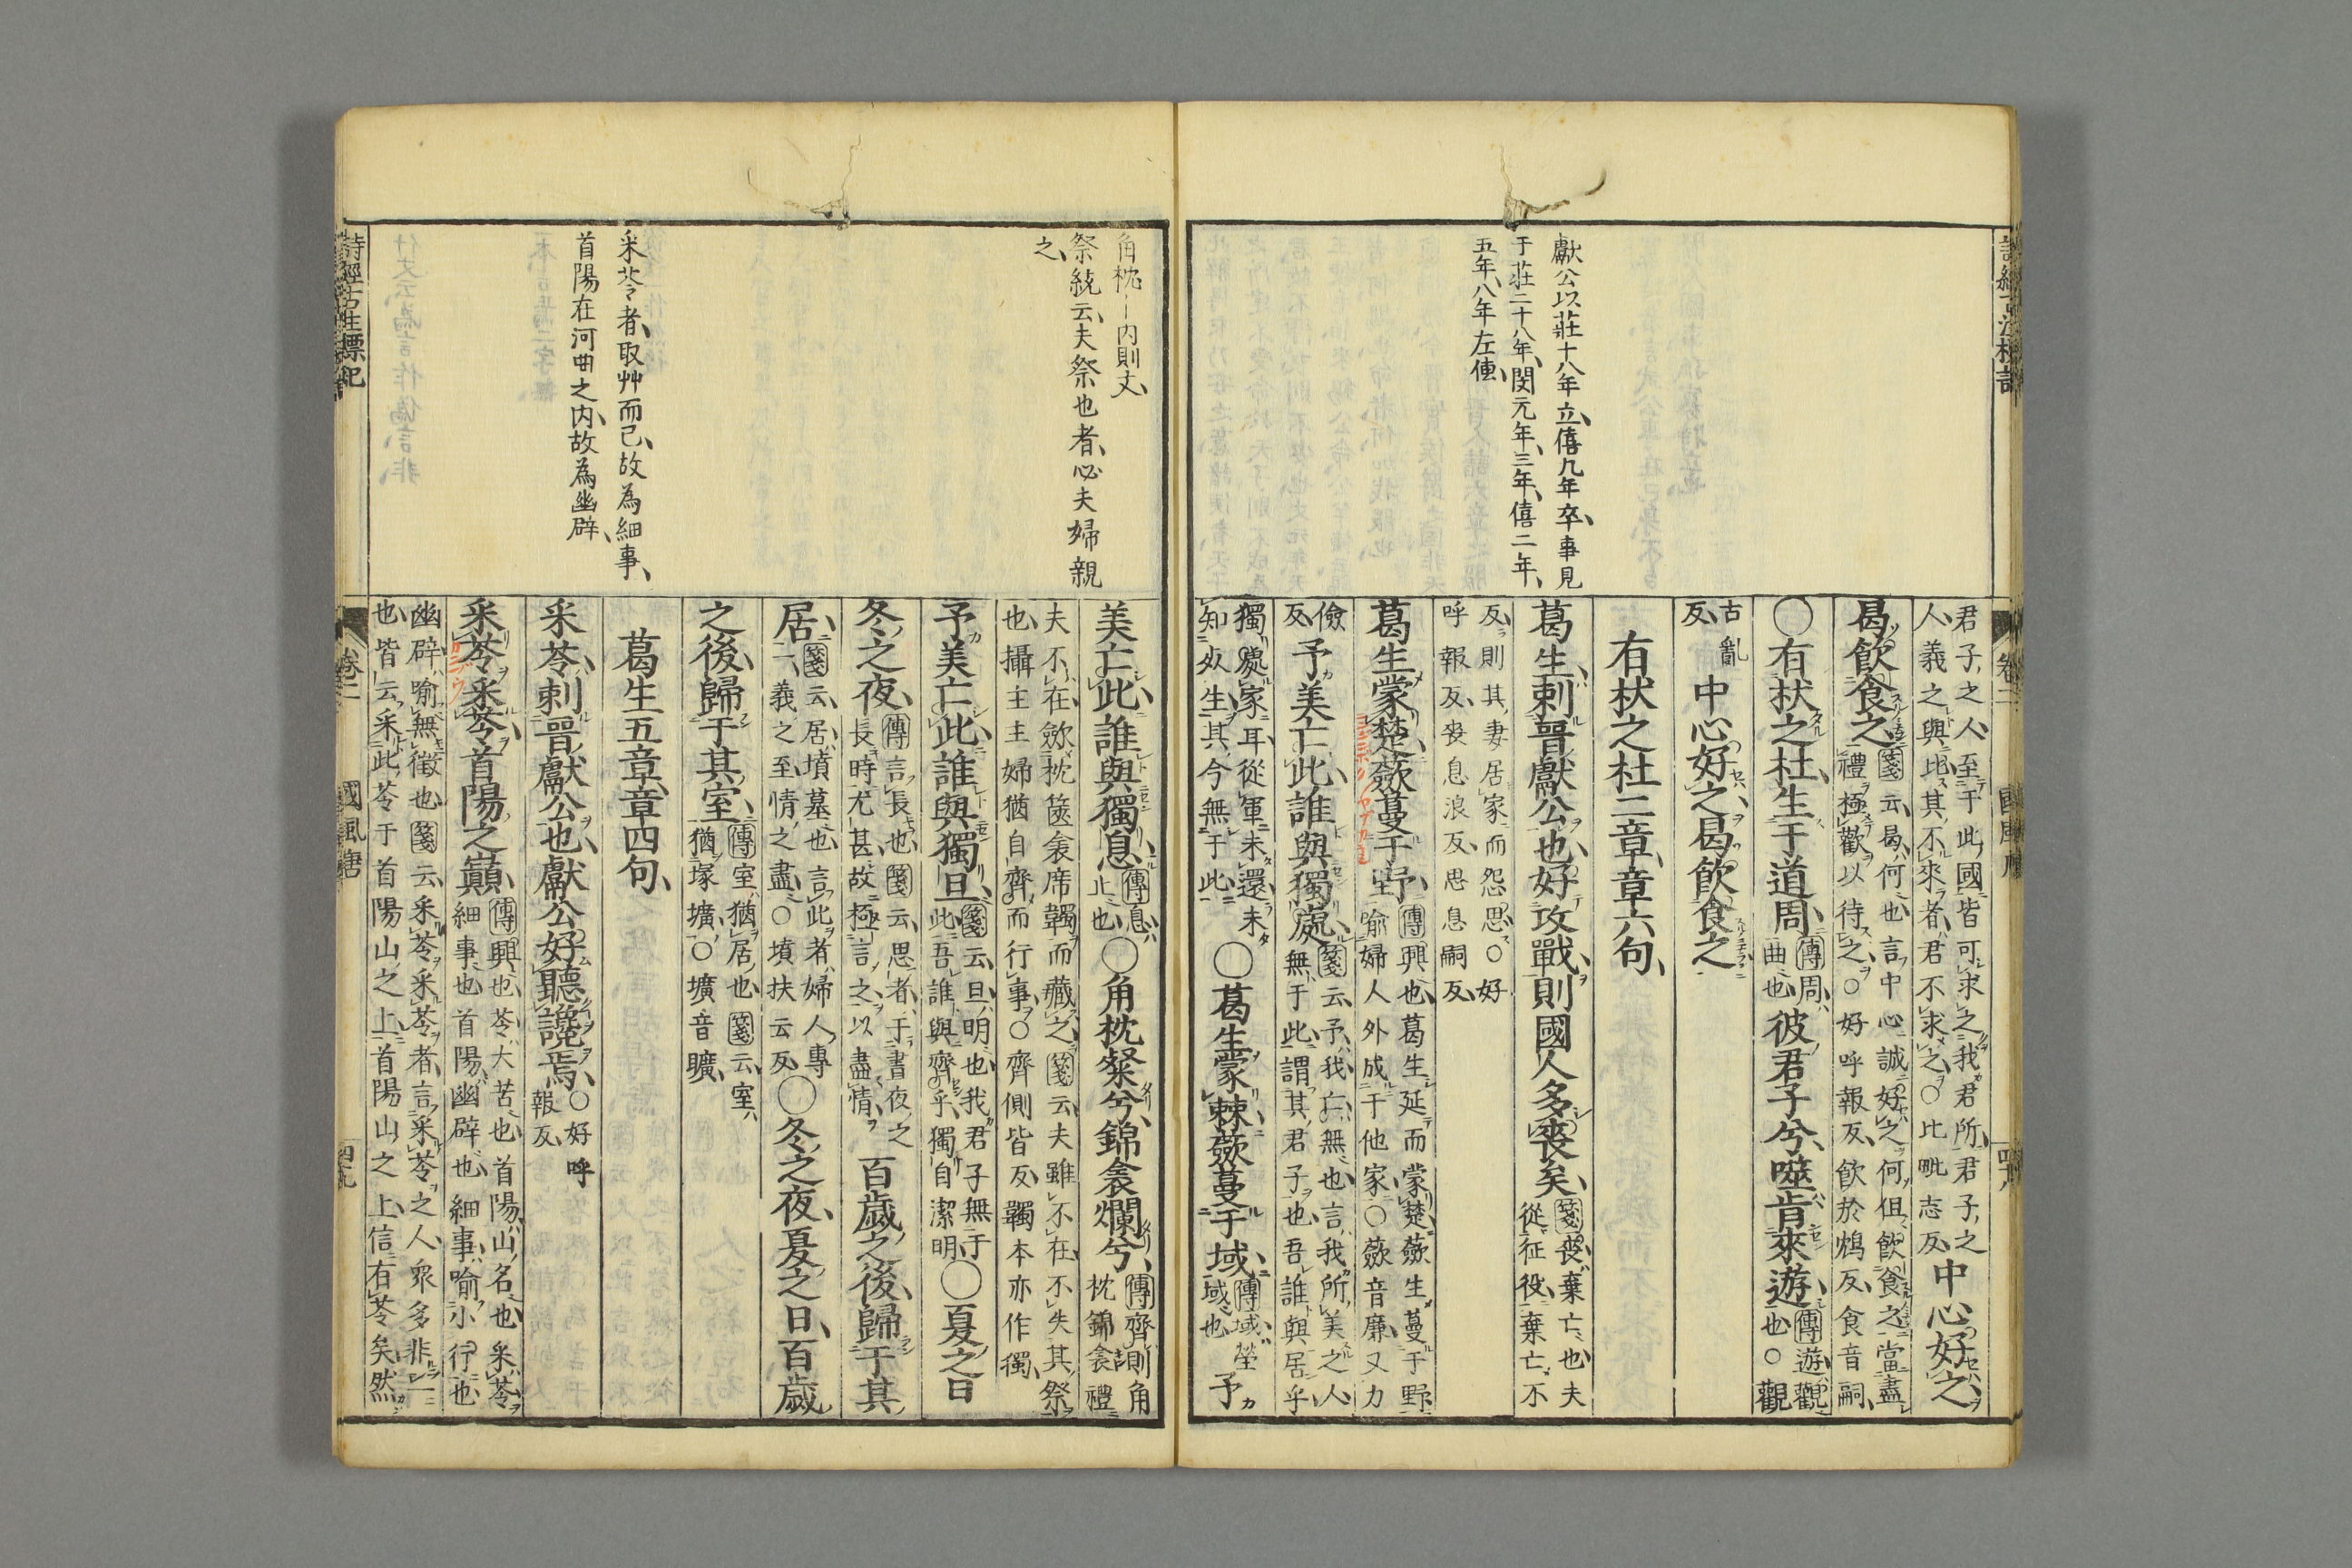 獻公以莊十八年立、僖九年卒、事見
于莊二十八年、閔元年、三年、僖二年、
五年、八年左傳、
君子之人至于此國皆可求之我君所君子之
人義之與比其不來者君不求之○比毗志反中心好之
曷飲食之箋云曷何也言中心誠好之何但飲食之當盡
禮極歡以待之○好呼報反飲於鴆反食音嗣
○有杕之杜生于道周傳周
曲也彼君子兮噬肯來遊傳遊觀
也○觀
古亂
反中心好之曷飲食之
有杕之杜二章章六句、
葛生刺晉獻公也好攻戰則國人多喪矣箋喪棄亡也夫
從征役棄亡不
反則其妻居家而怨思○好
呼報反喪息浪反思息嗣反
葛生蒙楚蘞蔓于野傳興也葛生延而蒙楚蘞生蔓于野
喻婦人外成于他家○蘞音廉又力
儉
反予美亡此誰與獨處箋云予我亡無也言我所美之人
無于此謂其君子也吾誰與居乎
獨處家耳從軍未還未
知死生其今無于此○葛生蒙棘蘞蔓于域傳域塋
域也予
角枕ー内則文、
祭統云、夫祭也者、必夫婦親
之、
采苓者、取艸而已、故為細事、
首陽在河曲之内、故為幽辟、
美亡此誰與獨息傳息
止也○角枕粲兮錦衾爛兮傳齊則角
枕錦衾禮
夫不在斂枕篋衾席韣而藏之箋云夫雖不在不失其祭
也攝主主婦猶自齊而行事○齊側皆反韣本亦作獨
予美亡此誰與獨旦箋云旦明也我君子無于
此吾誰與齊乎獨自潔明○夏之日
冬之夜傳言長也箋云思者于晝夜之
長時尤甚故極言之以盡情百歲之後歸于其
居箋云居墳墓也言此者婦人專
一義之至情之盡○墳扶云反○冬之夜夏之日百歲
之後歸于其室傳室猶居也箋云室
猶塚壙○壙音曠、
葛生五章章四句、
采苓刺晉獻公也獻公好聽讒焉○好呼
報反
采苓采苓首陽之巔傳興也苓大苦也首陽山名也采苓
細事也首陽幽辟也細事喻小行也
幽辟喻無徵也箋云采苓采苓者言采苓之人眾多非一
也皆云采此苓于首陽山之上首陽山之上信有苓矣然
詩經古註標記
卷二
國風唐
四十九